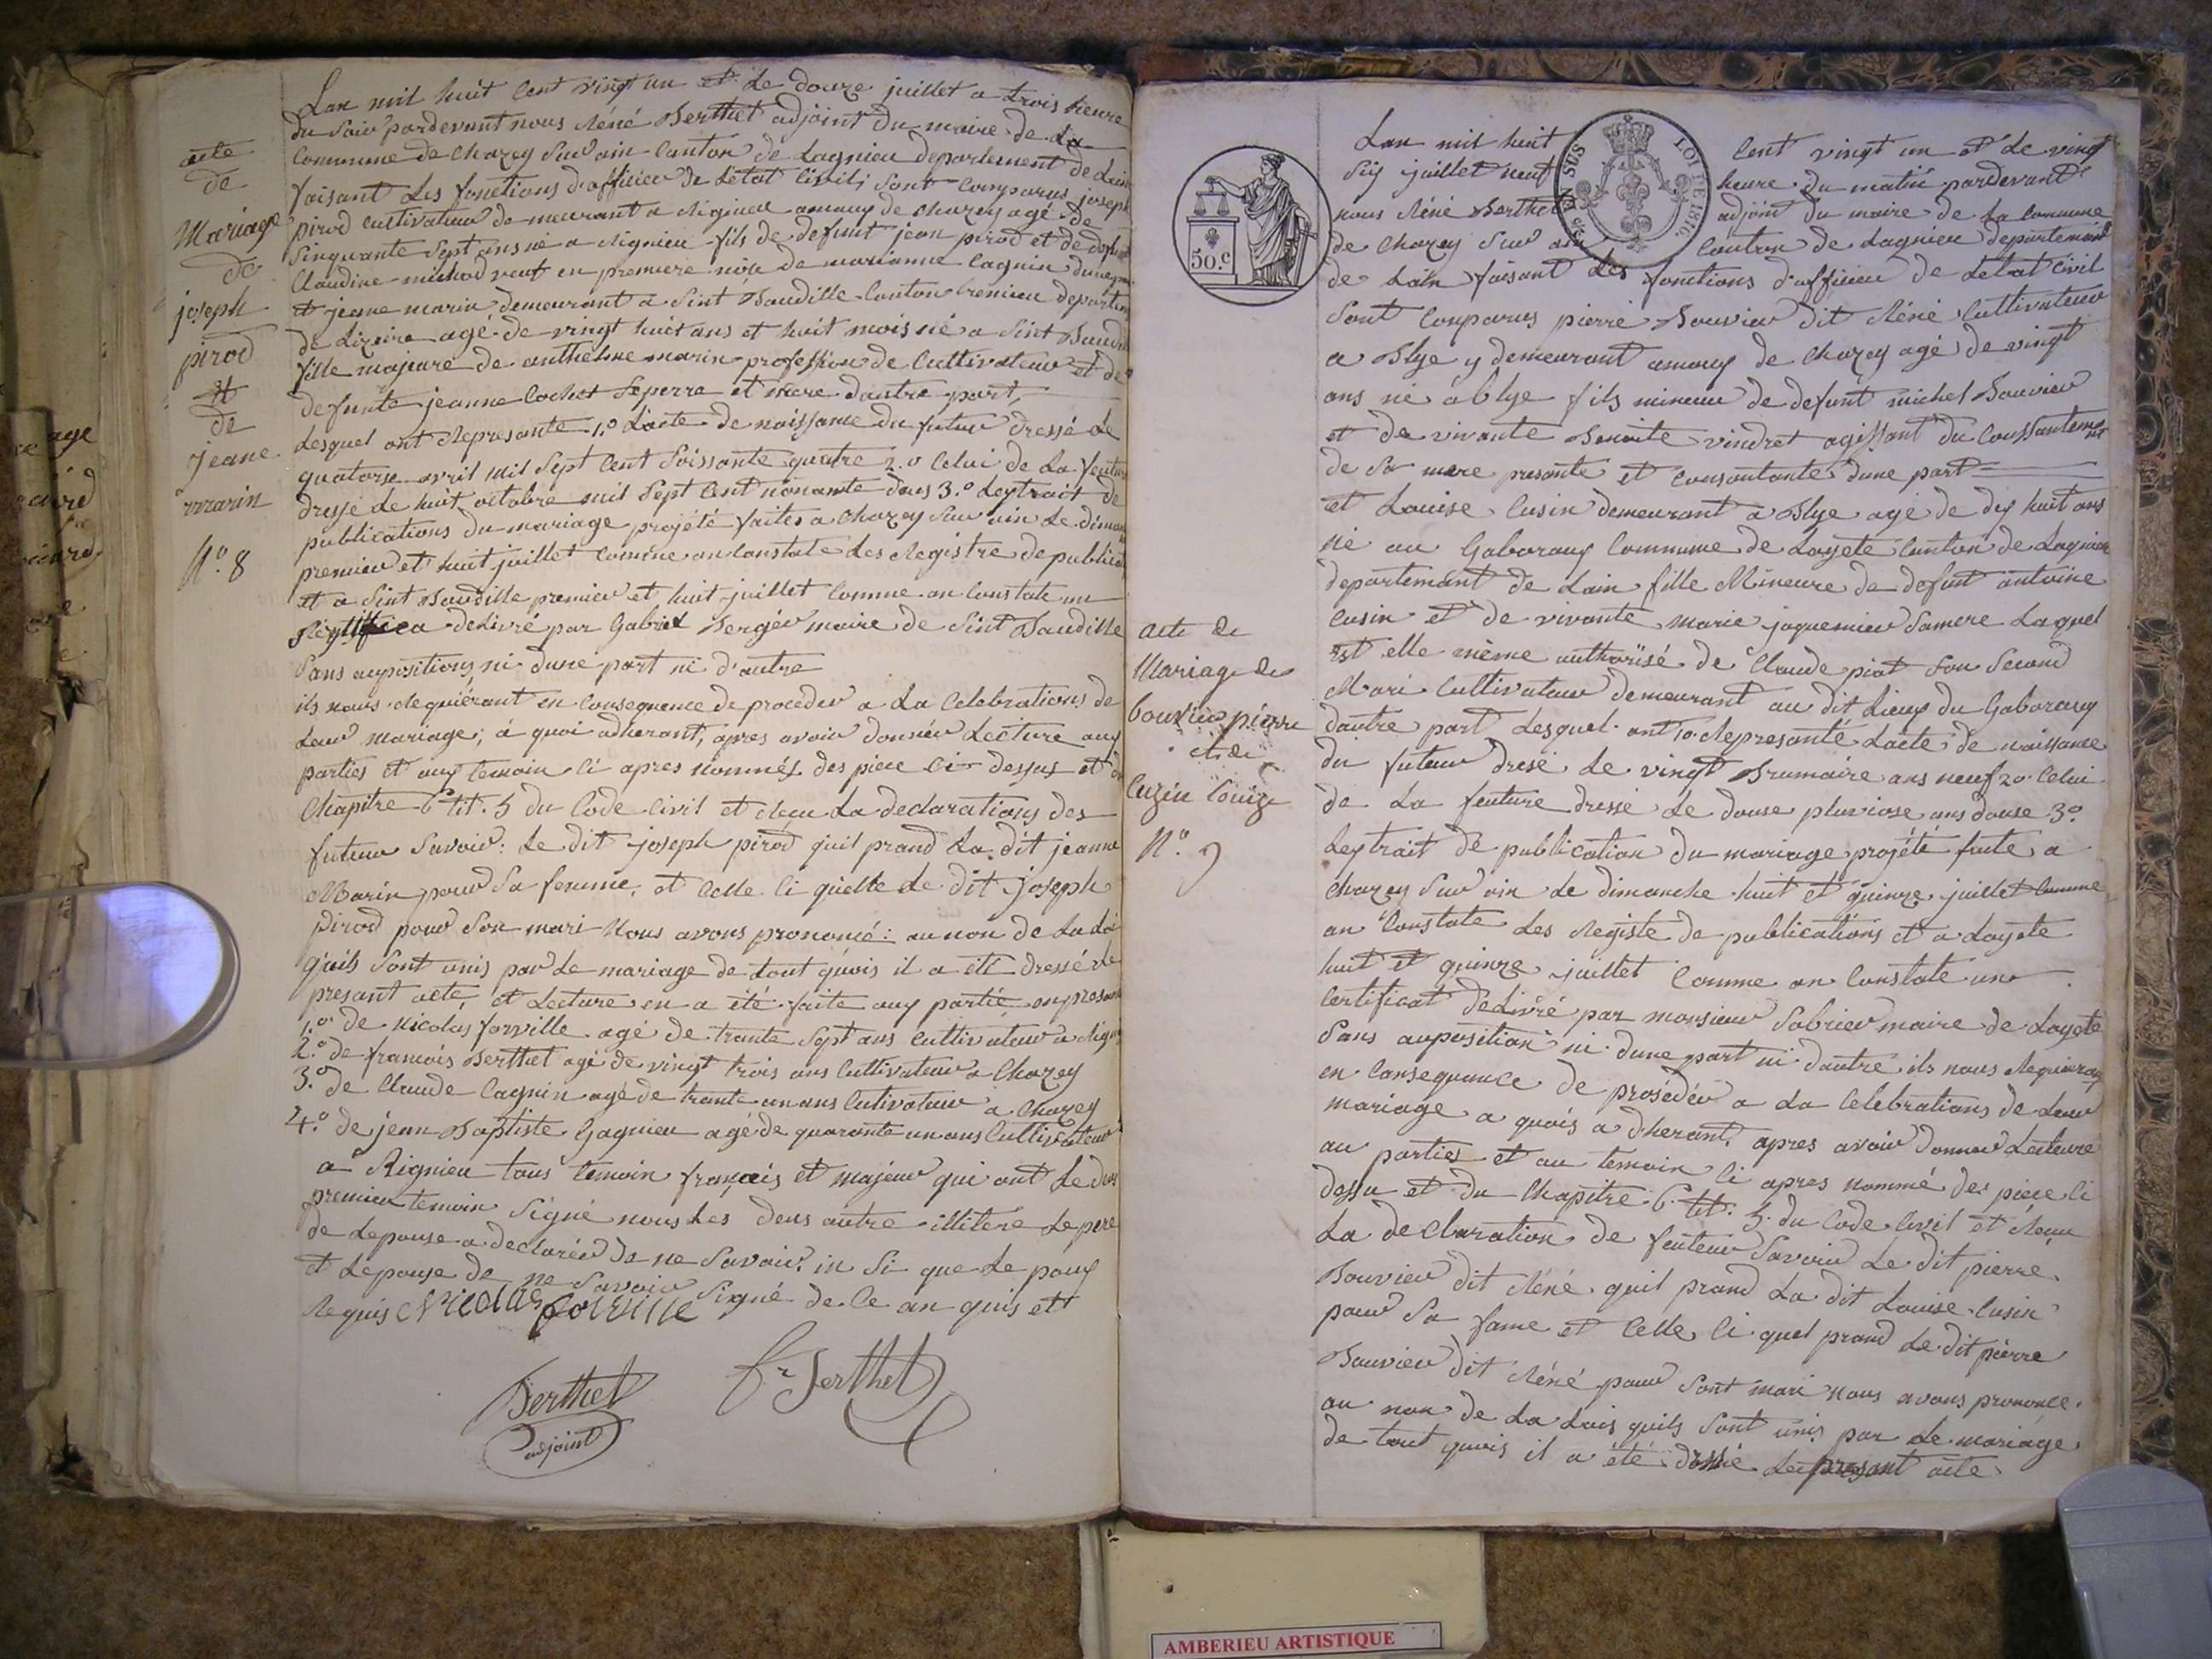 acte
de
Mariage
de
joseph
pirod
et
de
jeane
marin
N.o 8
Lan mil huit Cent vingt un et Le douze juillet a trois heure
du Soir pardevant nous Réné Berthet adjoint du maire de La
Commune de Chazey Sur ain Canton de Lagnieu departement de Lain
faisant Les fonctions d'officier de Létat Civil; Sont Comparus joseph
pirod Cultivateur de meurant a Rignieu amaux de Chazey agé de
Sinquante Sept ans né a Rignieu fils de defunt jean pirod et de defunte
Claudine michod veuf en premiere nôce de marianne Cagnin dune part
et jeane marin demeurant a Sint Baudille Canton Cremieu departem
de Lizaire agé de vingt huit ans et huit mois né a Sint Baudi
fille majeure de anthelme marin profession de Cultivateur et de
defunte jeanne Cochet Seperre et mere dautre part,
Lesquel ont Represanté 1.o Lacte de naissance du futur Dressé Le
quatorse avril mil Sept Cent Soissante quatre 2.o Celui de La feuture
dressé Le huit octobre mil Sept Cent nonante deus 3.o Leytrait de
publications du mariage projété faites a Chazey Sur ain Le diman
premier et huit juillet Comme an Constate Les Registre de publicat
et a Sint Baudille premier et huit juillet Comme an Constate un
delivré par Gabriel Bergér maire de Sint Baudille
Sans aupositions ni dune part ni d'autre
ils nous Requiérant en Consequence de proceder a La Celebrations de
Leur Mariage; á quoi adherant, apres avoir donnér Lecture aux
parties et aux temoin Ci apres nommés des piece Ci dessus et du
Chapitre 6 tit. 5 du Code Civil et Recu La declarations des
futeur Savoir: Le dit joseph pirod quil prand La dit jeanne
Marin pour Sa femme, et Celle Ci quelle Le dit joseph
Pirod pour Son mari Nous avons prononcé: au non de La Loi
quils Sont unis par Le mariage de tout quois il a été dressé Le
presant acte, et Lecture en a été faite aux partie en presan
1.o de Nicolas forville agé de trante Sept ans Cultivateur a Rign
2.o de francois Berthet agé de vingt trois ans Cultivateur a Chazey
3.o de Claude Cagnin agé de trante un ans Cultivateur a Chazey
4.o de jean Baptiste Gagnieu agé de quarante un ans Cultivateur
a Rignieu tous temoin français et majeur qui ont Le deus
premier temoin Signé nous Les deus autre illitère Le pere
de Lepouse a declarér de ne Savoir in Si que Le poux
et Lepouse de ne Savoir Signé de Ce an quis et
Requis Nicolas forville
Berthet
adjoint
fr Berthet
50.c
EN SUS
LOI DE 1816.
acte de
Mariage de
bouvier pierre
et de
Cuzin Louize
N.o 9
Lan mil huit Cent vingt un et Le vingt
Six juillet neuf heure du matin pardevant
nous Réné Berthet adjoint du maire de La Commune
de Chazey Sur ain Canton de Lagnieu departemant
de Lain faisant Les fonctions d'officier de Letat Civil
Sont Conparus pierre Bouvier dit Réné Cultivateur
a Blye y demeurant amaux de Chazey agé de vingt
ans né á blye fils mineur de defunt michel Bouvier
et de vivante Benoite vindret agissant du Coussantement
de Sa mere presante et Consantante dune part
et Louise Cusin demeurant a Blye age de dix huit ans
né au Gaboraux Commune de Loyete Canton de Lagnieu
departemant de Lain fille Mineure de defunt antoine
Cusin et de vivante marie jaquemier Samere Laquel
est elle même authorisé de Claude piat Son Second
Mari Cultivateur demeurant au dit Lieux du Gaboraux
dautre part Lesquel ont 1o Represanté Lacte de naissance
du futeur dresé Le vingt Brumaire ans neuf 2o Celui
de La feuture dressé Le douse pluviose ans douse 3o
Leytrait de publication du mariage projété faite a
Chazey Sur ain Le dimanche huit et quinze juillet Comme
an Constate Les Registe de publications et a Loyete
huit et quinze juillet Comme an Constate un
Certificat delivré par monsieur Sabrier maire de Loyete
Sans auposition ni dune part ni dautre ils nous Requierant
en Consequance de prosédér a La Celebrations de Leur
mariage a quois a dherant, apres avoir donner Lecteure
au parties et au temoin Ci apres nommé des piece Ci
dessu et du Chapitre 6 tit. 5 du Code Civil et Récu
La declaration de feuteur Savoir Le dit pierre
Bouvier dit Réné quil prand La dit Louise Cusin
pour Sa fame et Celle Ci quel prand Le dit pierre
Bouvier dit Réné pour Sont mari nous avons prononcé
au non de La Lois quils Sont unis par Le mariage
de tout quois il a été dressé Le presant acte
AMBERIEU ARTISTIQUE